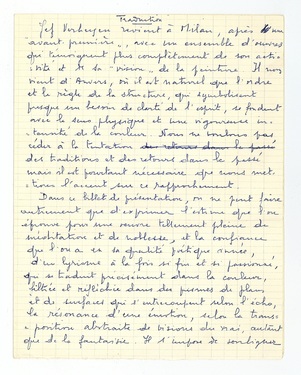 Traduction
Jef Verheyen revient à Milan, après "un
avant-première", avec un ensemble d'œuvres
qui témoignent plus complètement de son acti-
vité et de sa "vision" de la peinture. Il nous
vient d'Anvers, où il est naturel que l'ordre
et la règle de la structure, qui symbolisent
presque un besoin de clarté de l'esprit, se fondent
avec le sens physique et une vigoureuse in-
tensité de la couleur. Nous ne voulons pas
céder à la tentation des retours dans le passé
des traditions et des retours dans le passé
mais il est pourtant nécessaire que nous met-
tions l'accent sur ce rapprochement.
Dans ce billet de présentation, on ne peut faire
autrement que d'exprimer l'estime que l'on
éprouve pour une œuvre tellement pleine de
méditation et de noblesse, et la confiance
que l'on a en sa qualité poétique innée,
d'un lyrisme à la fois si fin et si passionné,
qui se traduit précisément dans la couleur,
filtrée et réfléchie dans des prismes de plans
et de surfaces qui s'entrecoupent selon l'écho,
la résonance d'une émotion, selon la trans-
position abstraite de visions du vrai, autant
que de la fantaisie. Il s'impose de souligner